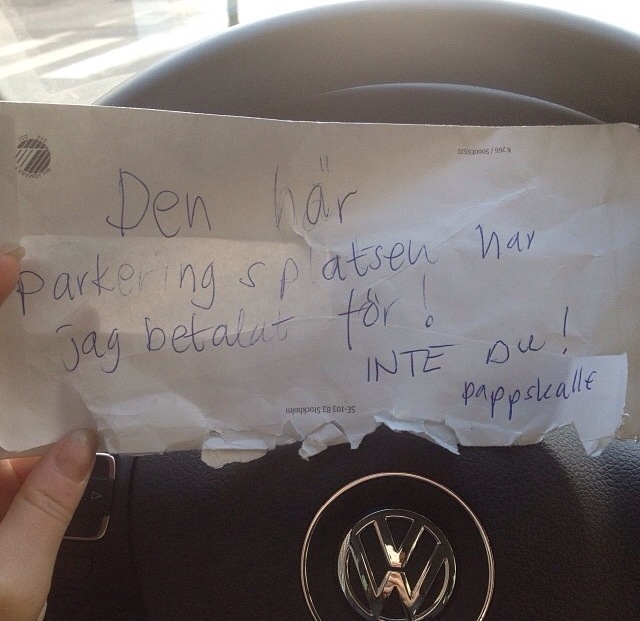 Den här
parkeringsplatsen har
jag betalat för!
INTE DU!
pappskalle
K 766 / S000E6521
SE-103 83 Stockholm